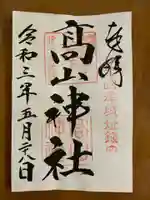 奉拝
髙山神社
令和三年五月二八日